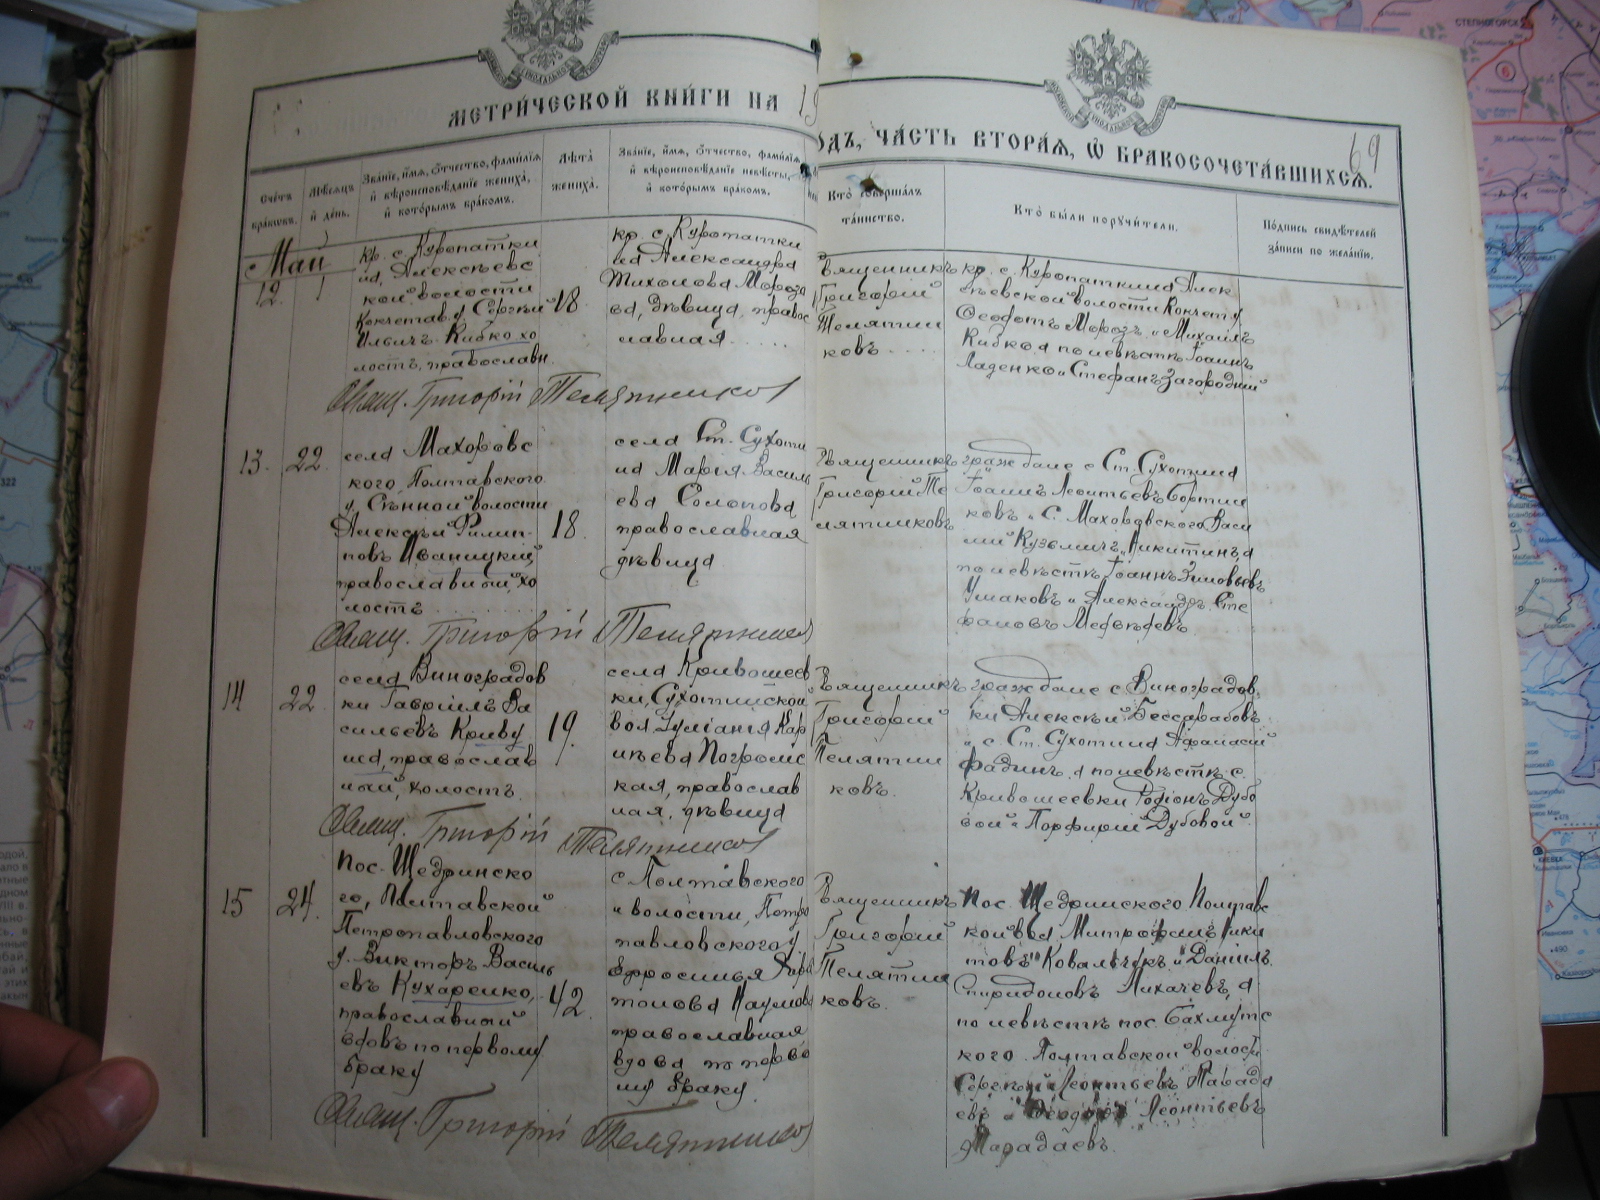 МЕТРИ́ЧЕСКОЙ КНИ́ГИ НА 19
ОДЪ, ЧА́СТЬ ВТОРА́Я, Ѽ БРАКОСОЧЕТА́ВШИХСѦ.
69
Сче́тъ
бра́ковъ.
Мѣ́сяцъ
и де́нь.
Зва́нїе, и́мѧ, ѻ́тчество, фами́лїѧ
и вѣроисповѣ́данїе жениха̀,
и кото́рымъ бра́комъ.
Лѣ́та
жениха̀.
Зва́нїе, и́мѧ, ѻ́тчество, фами́лїѧ
и вѣроисповѣ́данїе невѣ́сты,
и кото́рымъ бра́комъ.
Кто̀ соверша́лъ
та́инство.
Кто̀ бы́ли поручи́тели.
По́дпись свидѣ́телей
за́писи по жела́нїю.
Май
12.
кр. с. Куропатки
на, Алексѣевс
кой волости
Кокчетав. у. Сергѣй
Ильичъ Кибко хо
лостъ, православн.
18.
кр. с. Куропатки
на Александра
Тихонова Мороз
ва, дѣвица, правос
лавная.....
Священникъ
Григорий
Телятни
ковъ....
кр. с. Куропаткина Алек
сѣевской волости Кокчет. у.
Феодотъ Морозъ и Михаилъ
Кибко, а по невѣстѣ Iоаннъ
Ладенко и Стефанъ Загородний
Свящ. Григорiй Телятников
13. 22.
села Махоровс
кого, Полтавского
у. Сѣнной волости
Алексѣй Филип-
повъ Иваницкий
православный, хо
лостъ
18.
села Ст. Сухоти
на Марiя Василь
ева Солопова
православная
дѣвица
Священникъ
Григорий Те
лятниковъ
граждане с. Ст. Сухотина
Iоаннъ Леонтьевъ Бортни
ковъ и С. Маховского Васи
лий Кузьмичъ Никитинъ, а
по невѣстѣ Iоаннъ Зиновьевъ
Ушаковъ и Александръ Сте
фановъ Медвѣдевъ
Свящ. Григорiй Телятников
14 22
села Виноградов
ки Гаврiилъ Ва
сильевъ Криву
ша, православ
ный, холостъ.
19.
села Кривошеев
ки, Сухотинской
вол. Iулiанiя Кар
нѣева Погромс
кая, православ
ная, дѣвица
Священникъ
Григорий
Телятни
ковъ.
граждане с. Виноградов
ки Алексѣй Бессарабовъ
и с. Ст. Сухотина Афанасий
Фадинъ, а по невѣстѣ с.
Кривошеевки Родiонъ Дубо
вой и Порфирий Дубовой.
Свящ. Григорiй Телятников
15 24.
Пос. Щедринско
го, Полтавской
Петропавловского
у. Викторъ Василь
евъ Кухаренко,
православный
вдовъ по первому
браку
42.
с Полтавского
и волости, Петро
павловского у
Ефросинья Хари
тонова Наумова
православная
вдова по перво
му браку.
Священникъ
Григорий
Телятни
ковъ.
Пос. Щедринского Полтавс
кой вол Митрофанъ Ники
товъ Ковальчукъ и Данiилъ
Спиридоновъ Лихачевъ, а
по невѣстѣ пос. Бахмутс
кого. Полтавской волост.
Сергѣй Леонтьевъ Парада
евъ и Феодоръ Леонтьевъ
Парадаевъ.
Свящ. Григорiй Телятников